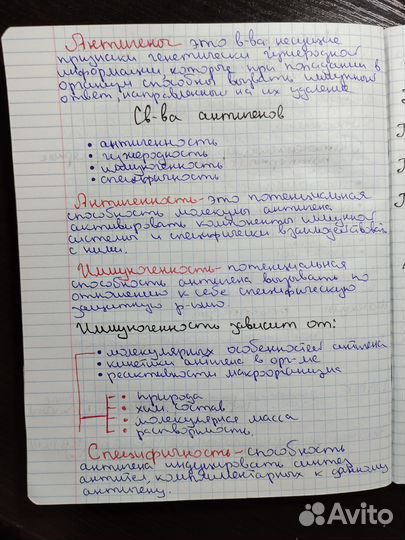 Антигены - это в-ва, несущие
признаки генетически чужеродной
информации, которые при попадании в
организм способны вызвать иммунный
ответ, направленный на их удаление
Св-ва антигенов
• антигенность
• чужеродность
• иммуногенность
• специфичность
Антигенность - это потенциальная
способность молекулы антигена
активировать компоненты иммунной
системы и специфически взаимодействовать
с ними.
Иммуногенность - потенциальная
способность антигена вызывать по
отношению к себе специфическую
защитную р-цию.
Иммуногенность зависит от:
• молекулярных особенностей антигена
• кинетики антигена в орг-ме
• реактивности макроорганизма
• природа
• хим. состав
• молекулярная масса
• растворимость.
Специфичность - способность
антигена индуцировать синтез
антител, комплментарных к данному
антигену.
Avito